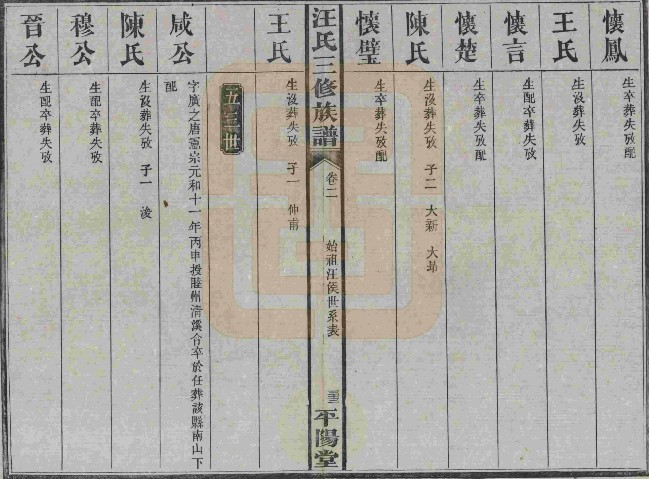 懷鳳
生卒葬失攷配
王氏
生沒葬失攷
懷言
生配卒葬失攷
懷楚
生卒葬失攷配
陳氏
生沒葬失攷 子二 大新 大昻
懷璧
生卒葬失攷配
汪氏三修族譜 卷二 始祖汪侯世系表 平陽堂
王氏
生沒葬失攷 子一 仲甫
五三世
咸公
字廣之唐憲宗元和十一年丙申授睦州清溪令卒於任葬該縣南山下
配
陳氏
生沒葬失攷 子一 浚
穆公
生配卒葬失攷
晉公
生配卒葬失攷